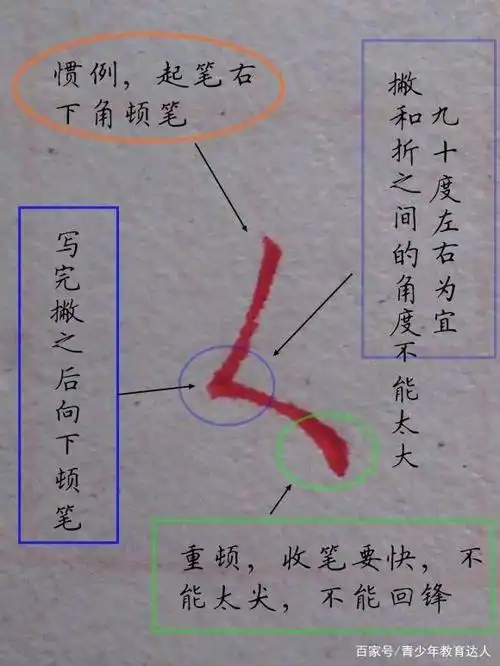 惯例，起笔右
下角顿笔
撇和折之间的角度不能太大
九十度左右为宜
写完撇之后向下顿笔
重顿，收笔要快，不
能太尖，不能回锋
百家号/青少年教育达人